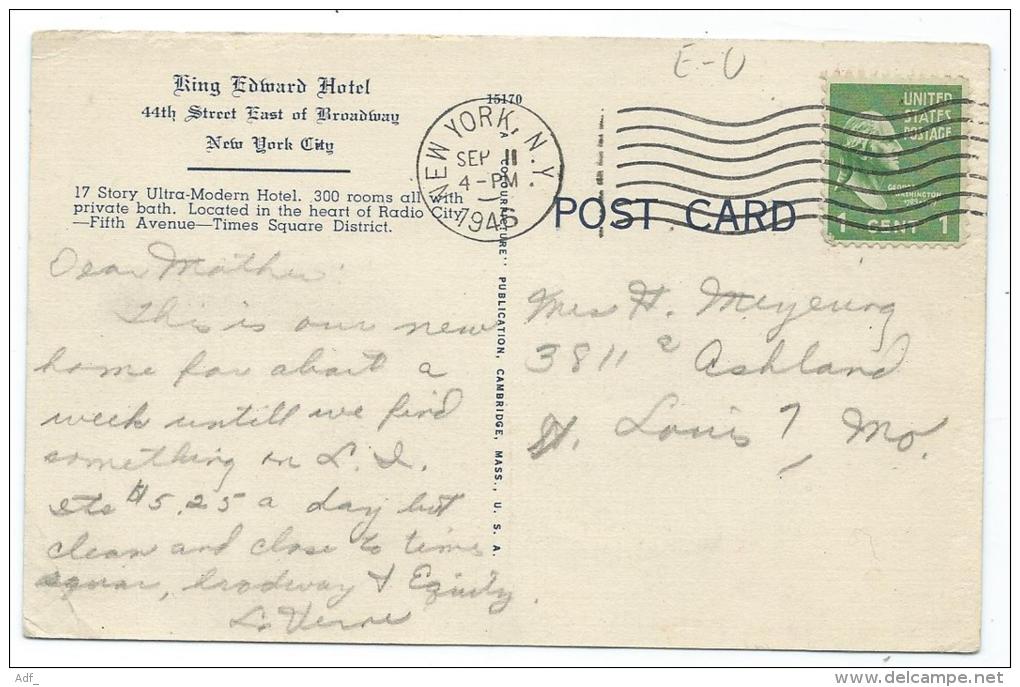 E-U
King Edward Hotel
44th Street East of Broadway
New York City
17 Story Ultra-Modern Hotel. 300 rooms all with
private bath. Located in the heart of Radio City
—Fifth Avenue—Times Square District.
Dear Mother:
This is our new
home for about a
week untill we find
something on L. I.
its $5.25 a day but
clean and close to times
squar, brodway & Equity.
La Verne
15170
"A COLOURPICTURE" PUBLICATION, CAMBRIDGE, MASS., U. S. A.
NEW YORK, N.Y.
SEP 11
4-PM
1945
POST CARD
UNITED
STATES
POSTAGE
GEORGE
WASHINGTON
1 CENT 1
Mrs H. Meyering
3811 a Ashland
St. Louis 7, Mo.
Adf_
delcampe.net